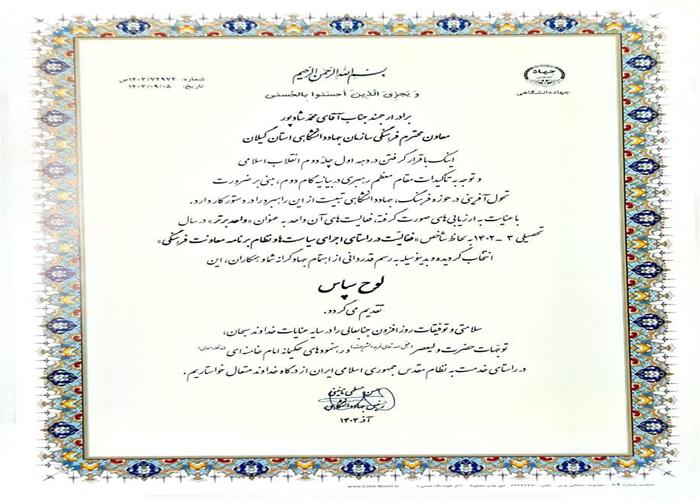 بسم الله الرحمن الرحیم
و یجزی الذین احسنوا بالحسنی
جهاد
جهاددانشگاهی
شماره: ۱۴۰۳/۷۲۹۷۲/ص
تاریخ: ۱۴۰۳/۰۹/۰۵
برادر ارجمند جناب آقای محمد شادپور
معاون محترم فرهنگی سازمان جهاددانشگاهی استان گیلان
اینک با قرار گرفتن در دهه اول چله دوم انقلاب اسلامی
و توجه به تاکیدات مقام معظم رهبری در بیانیه گام دوم، مبنی بر ضرورت
تحول آفرینی در حوزه فرهنگ، جهاددانشگاهی تبعیت از این راهبرد را در دستور کار دارد.
با عنایت به ارزیابی‌های صورت گرفته، فعالیت‌های آن واحد به عنوان «واحد برتر» در سال
تحصیلی ۳-۱۴۰۲ به لحاظ شاخص «فعالیت در راستای اجرای سیاست‌ها و نظام برنامه معاونت فرهنگی»
انتخاب گردیده و بدینوسیله به رسم قدردانی از اهتمام جهادگرانه شما و همکاران، این
لوح سپاس
تقدیم می‌گردد.
سلامتی و توفیقات روزافزون جنابعالی را در سایه عنایات خداوند سبحان،
توجهات حضرت ولیعصر (عجل الله تعالی فرجه الشریف) و رهنمودهای حکیمانه امام خامنه‌ای (مدظله العالی)
در راستای خدمت به نظام مقدس جمهوری اسلامی ایران از درگاه خداوند متعال خواستاریم.
حسن مسلمی نائینی
رئیس جهاددانشگاهی
آذر ۱۴۰۳